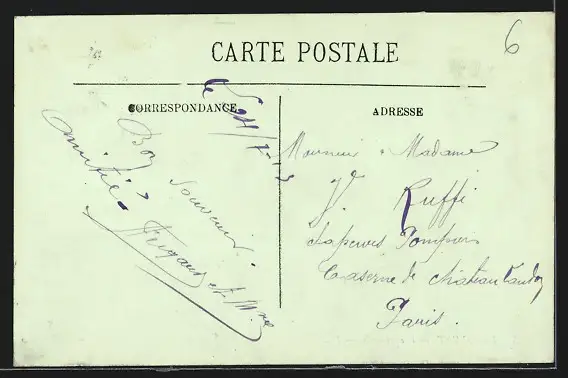 6
CARTE POSTALE
CORRESPONDANCE
ADRESSE
le 24/7-13
Bon souvenir.
amitié.
et Mme
Monsieur & Madame
J. Ruffi
Sapeurs Pompiers
Caserne de Chateau Landon
Paris.